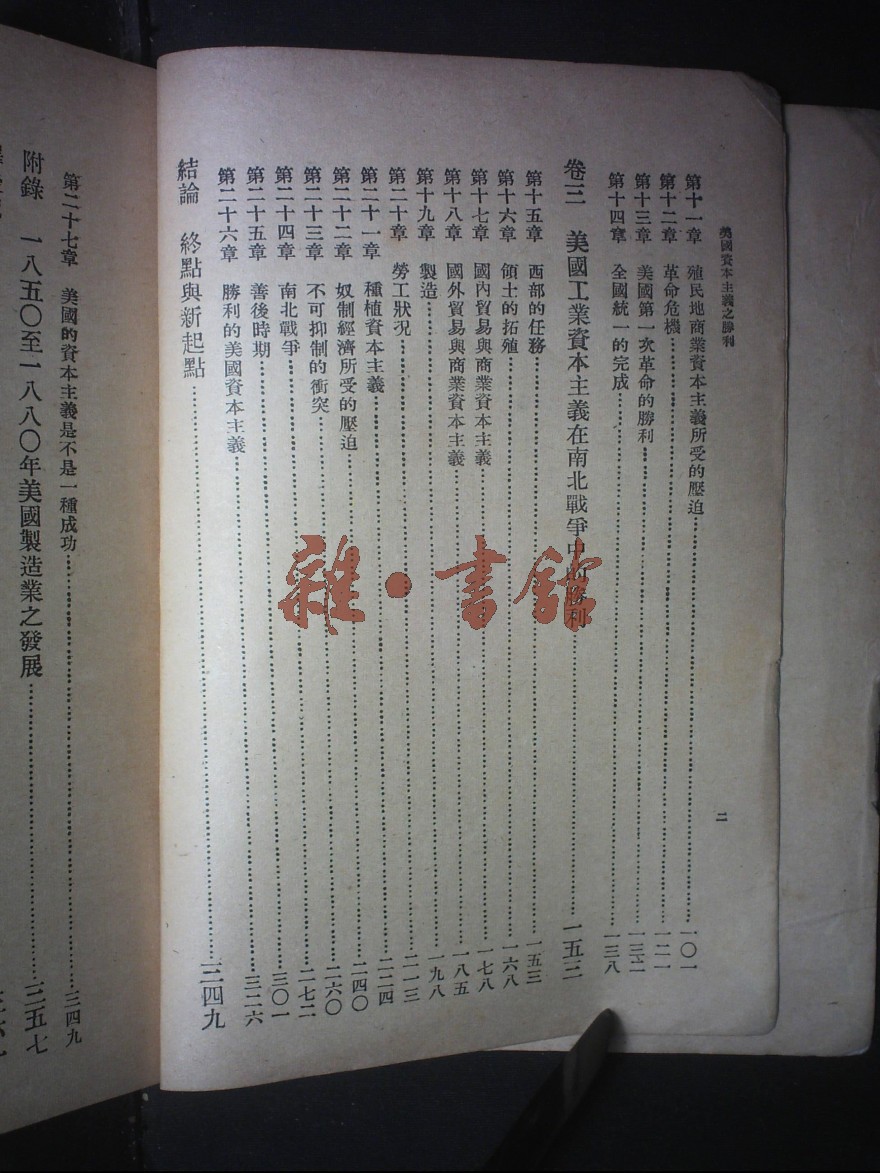 美國資本主義之勝利
二
第十一章 殖民地商業資本主義所受的壓迫……一〇一
第十二章 革命危機……一二一
第十三章 美國第一次革命的勝利……一三二
第十四章 全國統一的完成……一三八
卷三 美國工業資本主義在南北戰爭中的勝利……一五三
第十五章 西部的任務……一五三
第十六章 領土的拓殖……一六八
第十七章 國內貿易與商業資本主義……一七八
第十八章 國外貿易與商業資本主義……一八五
第十九章 製造……一九八
第二十章 勞工狀況……二一三
第二十一章 種植資本主義……二二四
第二十二章 奴制經濟所受的壓迫……二四〇
第二十三章 不可抑制的衝突……二六〇
第二十四章 南北戰爭……二七二
第二十五章 善後時期……三〇一
第二十六章 勝利的美國資本主義……三二六
結論 終點與新起點……三四九
第二十七章 美國的資本主義是不是一種成功……三四九
附錄 一八五〇至一八八〇年美國製造業之發展……三五七
雜·書館